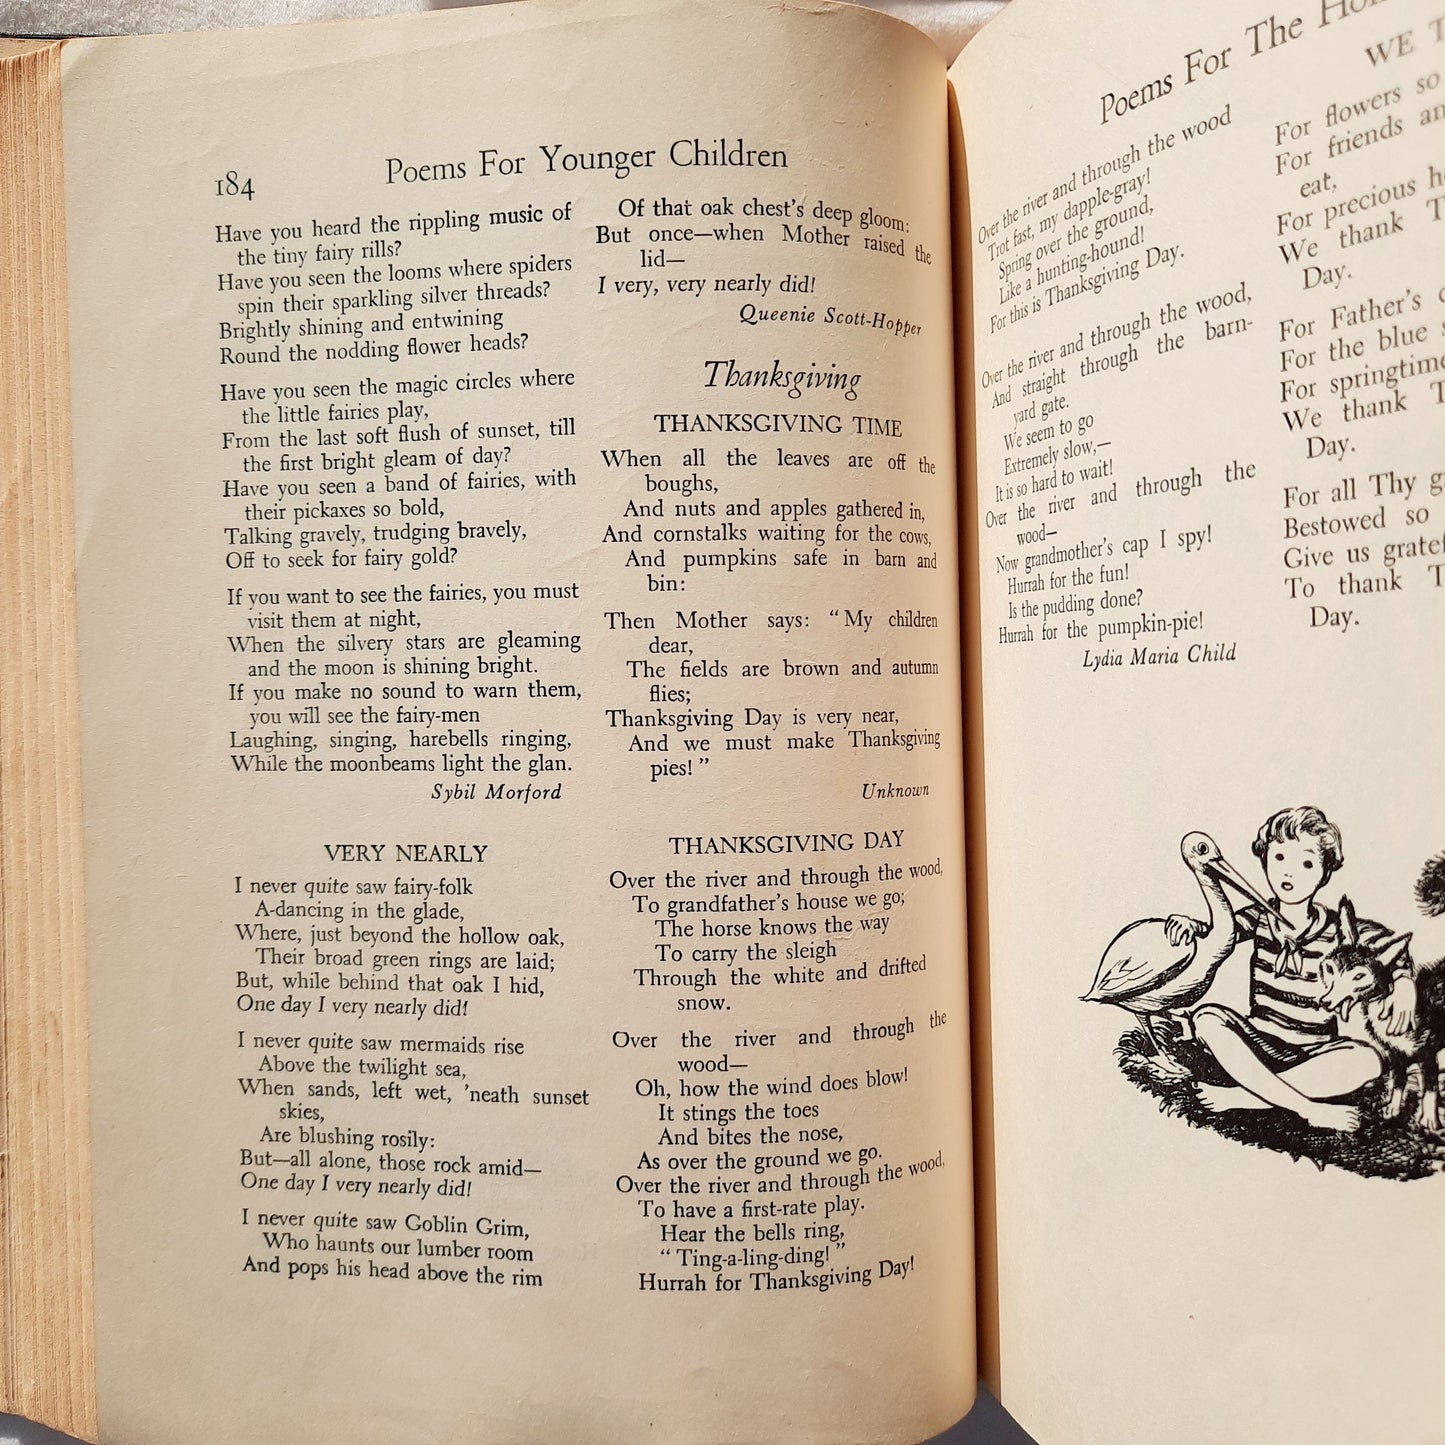 184
Poems For Younger Children
Have you heard the rippling music of
the tiny fairy rills?
Have you seen the looms where spiders
spin their sparkling silver threads?
Brightly shining and entwining
Round the nodding flower heads?
Have you seen the magic circles where
the little fairies play,
From the last soft flush of sunset, till
the first bright gleam of day?
Have you seen a band of fairies, with
their pickaxes so bold,
Talking gravely, trudging bravely,
Off to seek for fairy gold?
If you want to see the fairies, you must
visit them at night,
When the silvery stars are gleaming
and the moon is shining bright.
If you make no sound to warn them,
you will see the fairy-men
Laughing, singing, harebells ringing,
While the moonbeams light the glan.
Sybil Morford
VERY NEARLY
I never quite saw fairy-folk
A-dancing in the glade,
Where, just beyond the hollow oak,
Their broad green rings are laid;
But, while behind that oak I hid,
One day I very nearly did!
I never quite saw mermaids rise
Above the twilight sea,
When sands, left wet, 'neath sunset
skies,
Are blushing rosily:
But—all alone, those rock amid—
One day I very nearly did!
I never quite saw Goblin Grim,
Who haunts our lumber room
And pops his head above the rim
Of that oak chest's deep gloom:
But once—when Mother raised the
lid—
I very, very nearly did!
Queenie Scott-Hopper
Thanksgiving
THANKSGIVING TIME
When all the leaves are off the
boughs,
And nuts and apples gathered in,
And cornstalks waiting for the cows,
And pumpkins safe in barn and
bin:
Then Mother says: "My children
dear,
The fields are brown and autumn
flies;
Thanksgiving Day is very near,
And we must make Thanksgiving
pies!"
Unknown
THANKSGIVING DAY
Over the river and through the wood,
To grandfather's house we go;
The horse knows the way
To carry the sleigh
Through the white and drifted
snow.
Over the river and through the
wood—
Oh, how the wind does blow!
It stings the toes
And bites the nose,
As over the ground we go.
Over the river and through the wood,
To have a first-rate play.
Hear the bells ring,
"Ting-a-ling-ding!"
Hurrah for Thanksgiving Day!
Poems For The
Over the river and through the wood
Trot fast, my dapple-gray!
Spring over the ground,
Like a hunting-hound!
For this is Thanksgiving Day.
Over the river and through the wood,
And straight through the barn-
yard gate.
We seem to go
Extremely slow,—
It is so hard to wait!
Over the river and through the
wood—
Now grandmother's cap I spy!
Hurrah for the fun!
Is the pudding done?
Hurrah for the pumpkin-pie!
Lydia Maria Child
WE
For flowers so
For friends
eat,
For precious
We thank
Day.
For Father's
For the blue
For springtime
We thank
Day.
For all Thy
Bestowed so
Give us
To thank
Day.